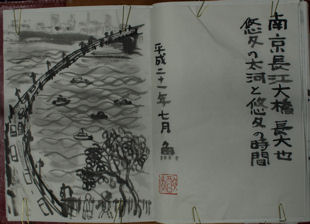 南京長江大橋 長大也
悠久の大河と悠久の時間
平成二十一年 七月